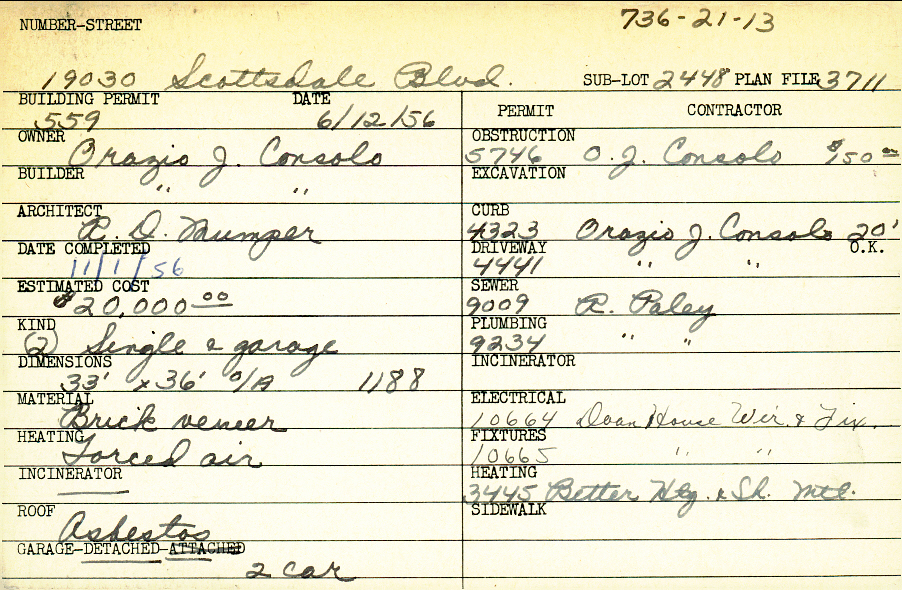 736-21-13
NUMBER-STREET
19030 Scottsdale Blvd. SUB-LOT 2448 PLAN FILE 3711
BUILDING PERMIT DATE
559 6/12/56
OWNER
Orazio J. Consolo
BUILDER
" "
ARCHITECT
R. D. Mumper
DATE COMPLETED
11/1/56
ESTIMATED COST
$20,000.00
KIND
(2) Single & garage
DIMENSIONS
33' x 36' o/a 1188
MATERIAL
Brick veneer
HEATING
Forced air
INCINERATOR
ROOF
Asbestos
GARAGE-DETACHED-ATTACHED
2 car
PERMIT CONTRACTOR
OBSTRUCTION
5746 O. J. Consolo $50 00
EXCAVATION
CURB
4323 Orazio J. Consolo 20'
DRIVEWAY O.K.
4441 " "
SEWER
9009 R. Paley
PLUMBING
9234 " "
INCINERATOR
ELECTRICAL
10664 Doan House Wir. & Fix.
FIXTURES
10665 " "
HEATING
3445 Better Htg. & Sh. Mtl.
SIDEWALK